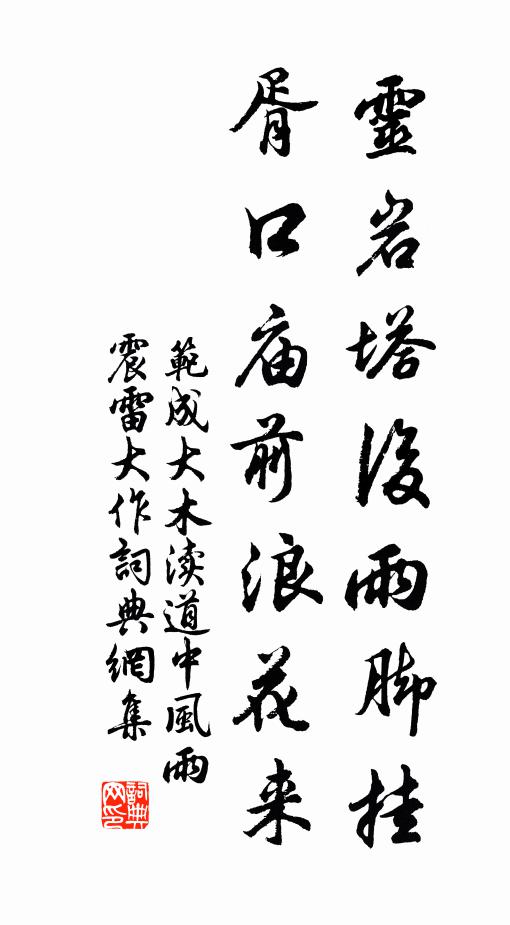 靈岩塔後雨脚挂
胥口庙前浪花来
範成大木渎道中風雨
震雷大作詞典網集
詞典网印